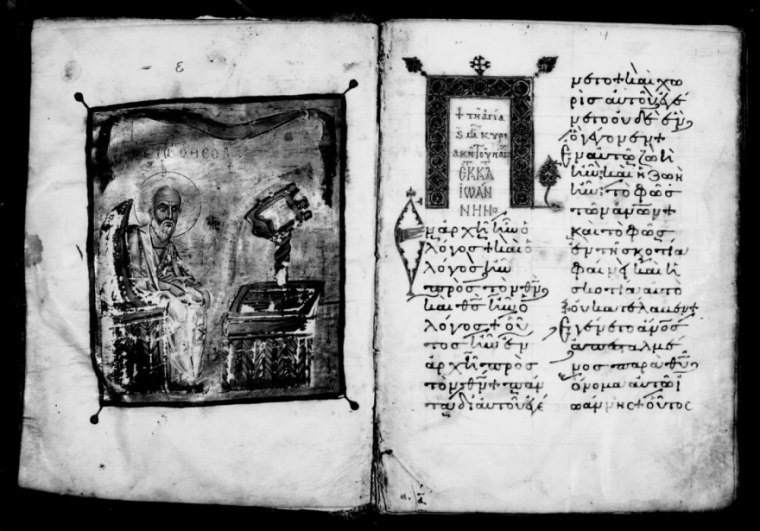 ε
ΙΩ Ο ΘΕΟΛ
+ τῆ ἁγία
κυρι
ακῆ τοῦ πασχ
ΕΚ ΚΑ
ΙΩΑΝ
ΝΗΝ
Ἐν ἀρχῆ ἦν ὁ
λόγος + καὶ ὁ
λόγος ἦν
πρὸς τὸν θν,
καὶ θς ἦν ὁ
λόγος + οὗ
τος ἦν ἐν
ἀρχῆ πρὸς
τὸν θν + πάν
τα δι αὐτοῦ ἐγέ
νετο + καὶ χω
ρὶς αὐτοῦ ἐγέ
νετο οὐδὲ ἕν,
ὃ γέγονεν +
Ἐν αὐτῶ ζωὴ
ἦν, καὶ ἡ ζωὴ
ἦν τὸ φῶς
τῶν ἀνων +
καὶ τὸ φῶς
ἐν τῆ σκοτία
φαίνει καὶ ἡ
σκοτία αὐτὸ
οὐ κατέλαβεν +
Ἐγένετο ἀνος
ἀπεσταλμέ
νος παρὰ θυ
ὄνομα αὐτῶ ἰ
ωάννης + οὗτος